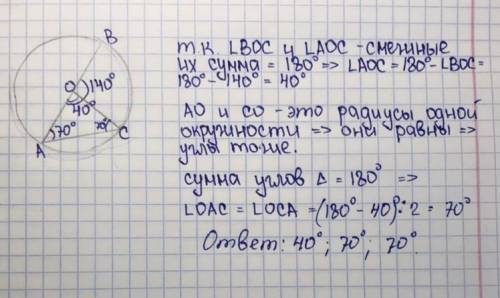 B
O 140°
40°
70° 70°
A C
т.к ∠BOC и ∠AOC - смежные
их сумма = 180° => ∠AOC = 180° - ∠BOC =
180° - 140° = 40°
AO и CO - это радиусы одной
окружности => они равны =>
углы тоже.
сумма углов Δ = 180° =>
∠OAC = ∠OCA = (180° - 40)°: 2 = 70°
Ответ: 40°; 70°; 70°.